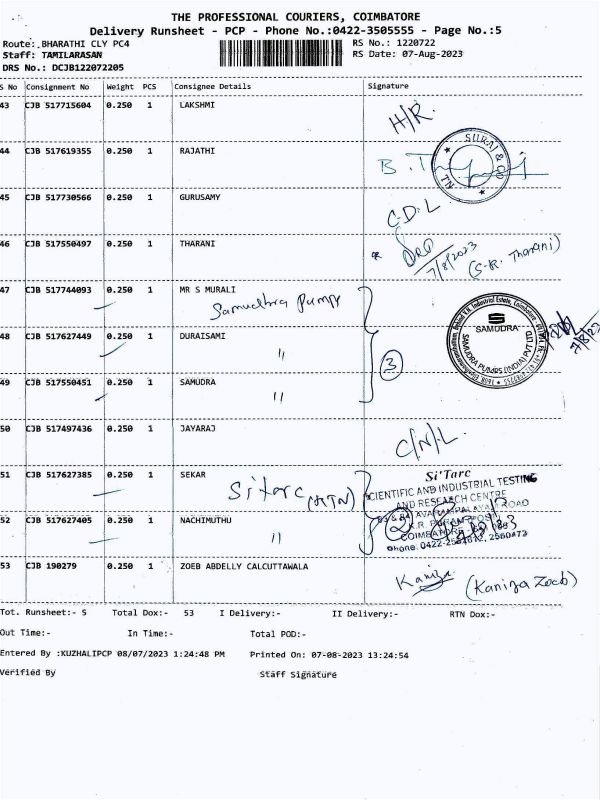 THE PROFESSIONAL COURIERS, COIMBATORE
Delivery Runsheet - PCP - Phone No.:0422-3505555 - Page No.:5
Route: BHARATHI CLY PC4 RS No.: 1220722
Staff: TAMILARASAN RS Date: 07-Aug-2023
DRS No.: DCJB122072205
S No Consignment No Weight PCS Consignee Details Signature
43 CJB 517715604 0.250 1 LAKSHMI H/R.
44 CJB 517619355 0.250 1 RAJATHI B.
SURAJ & CO
45 CJB 517730566 0.250 1 GURUSAMY C-D-L
46 CJB 517550497 0.250 1 THARANI 7/8/2023 (S-R. Tharani)
47 CJB 517744093 0.250 1 MR S MURALI
Samudhra Pumps
48 CJB 517627449 0.250 1 DURAISAMI
"
3
SAMUDRA
SAMUDRA PUMPS (INDIA) PVT LTD
49 CJB 517550451 0.250 1 SAMUDRA
"
50 CJB 517497436 0.250 1 JAYARAJ C/N/L
51 CJB 517627385 0.250 1 SEKAR
Sitarc
2
Si'Tarc
SCIENTIFIC AND INDUSTRIAL TESTING
AND RESEARCH CENTRE
52 CJB 517627405 0.250 1 NACHIMUTHU
"
53 CJB 190279 0.250 1 ZOEB ABDELLY CALCUTTAWALA Kaniza (Kaniza Zoeb)
Tot. Runsheet:- 5 Total Dox:- 53 I Delivery:- II Delivery:- RTN Dox:-
Out Time:- In Time:- Total POD:-
Entered By :KUZHALIPCP 08/07/2023 1:24:48 PM Printed On: 07-08-2023 13:24:54
Verified By Staff Signature